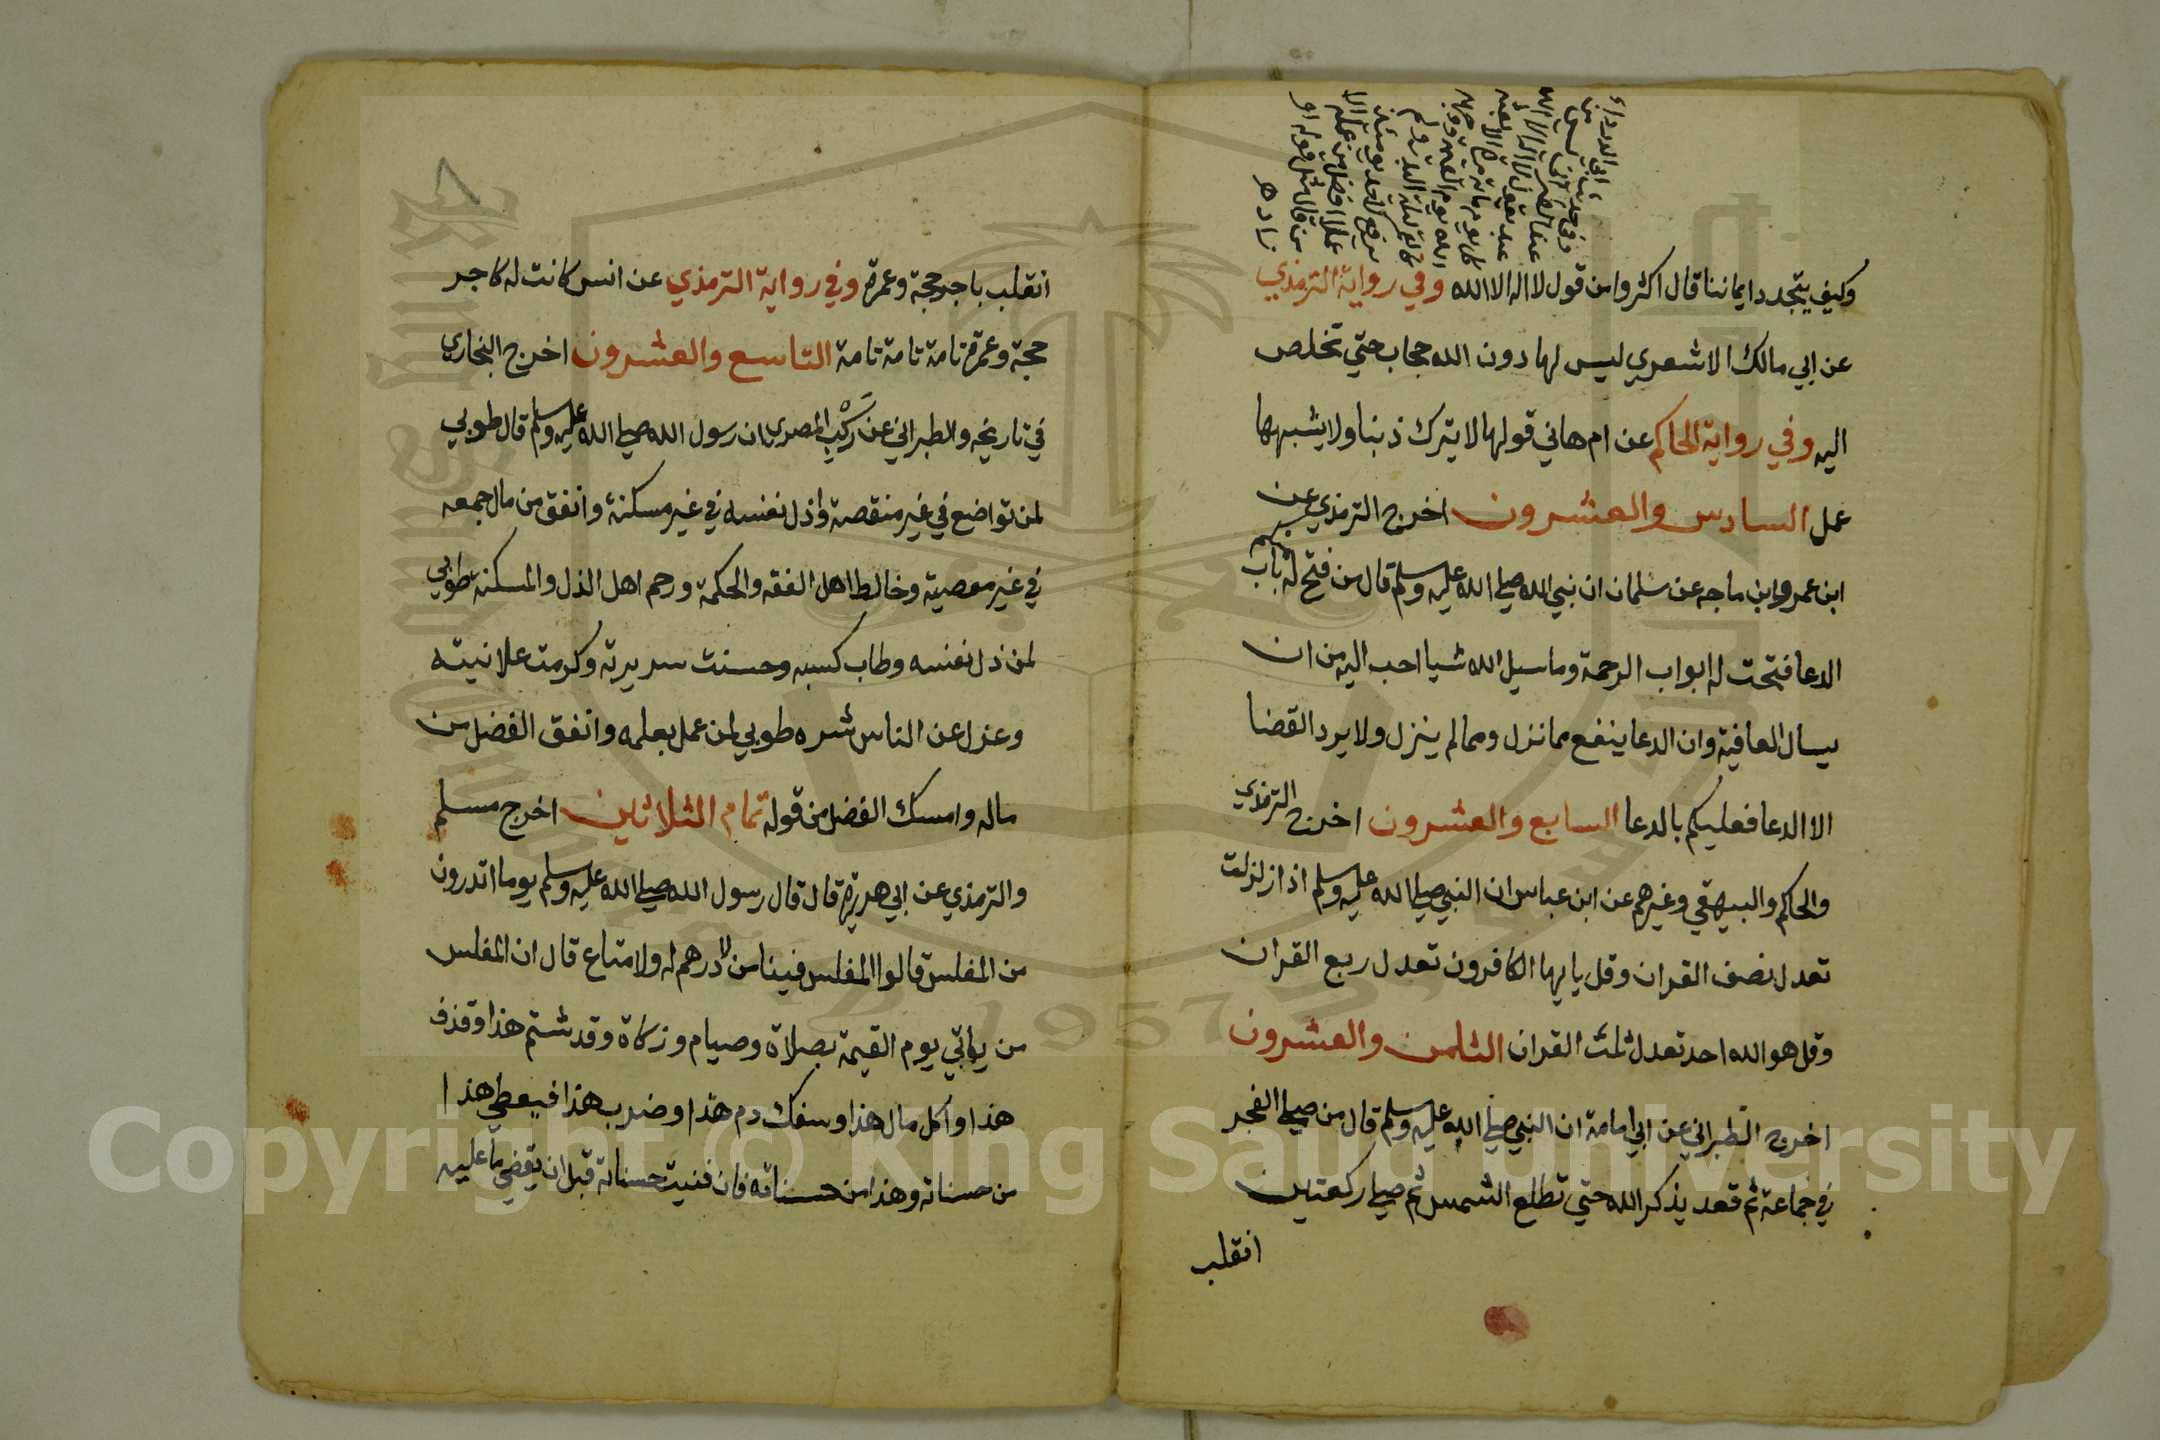 وفي حديث ابي الدرداء
عند الطبراني ليس من
عبد يقول لا اله الا الله
مائة مرة الا بعثه
الله يوم القيمة ووجهه
كالقمر ليلة البدر ولم
يرفع لاحد يومئذ
عملا افضل من عمله الا
من قال مثل قوله او
زاد ه
وكيف يتجدد ايماننا قال اكثروا من قول لا اله الا الله وفي رواية الترمذي
عن ابي مالك الاشعري ليس لها دون الله حجاب حتي تخلص
اليه وفي رواية الحاكم عن ام هاني قولها لا يترك ذنبا ولا يشبهها
عمل السادس والعشرون اخرج الترمذي عن
ابن عمر وابن ماجه عن سلمان ان نبي الله صلي الله عليه وسلم قال من فتح له باب
الدعا فتحت له ابواب الرحمة وما سيل الله شيا احب اليه من ان
يسال العافية وان الدعا ينفع مما نزل ومما لم ينزل ولا يرد القضا
الا الدعا فعليكم بالدعا السابع والعشرون اخرج الترمذي
والحاكم والبيهقي وغيرهم عن ابن عباس ان النبي صلي الله عليه وسلم اذا زلزلت
تعدل نصف القران وقل يايها الكافرون تعدل ربع القران
وقل هو الله احد تعدل ثلث القران الثامن والعشرون
اخرج الطبراني عن ابي امامة ان النبي صلي الله عليه وسلم قال من صلي الفجر
في جماعة ثم قعد يذكر الله حتي تطلع الشمس ثم صلي ركعتين
انقلب
٨
انقلب باجر حجة وعمرة وفي رواية الترمذي عن انس كانت له كاجر
حجة وعمرة تامة تامة تامة التاسع والعشرون اخرج البخاري
في تاريخه والطبراني عن ركب المصري ان رسول الله صلي الله عليه وسلم قال طوبي
لمن تواضع في غير منقصة واذل نفسه في غير مسكنة وانفق من مال جمعه
في غير معصية وخالط اهل الفقه والحكمة ورحم اهل الذل والمسكنة طوبي
لمن ذل نفسه وطاب كسبه وحسنت سريرته وكرمت علانيته
وعزل عن الناس شره طوبي لمن عمل بعلمه وانفق الفضل من
ماله وامسك الفضل من قوله تمام الثلاثين اخرج مسلم
والترمذي عن ابي هريرة قال قال رسول الله صلي الله عليه وسلم يوما اتدرون
من المفلس قالوا المفلس فينا من لا درهم له ولا متاع قال ان المفلس
من ياتي يوم القيمة بصلاة وصيام وزكاة وقد شتم هذا وقذف
هذا واكل مال هذا وسفك دم هذا وضرب هذا فيعطي هذا
من حسناته وهذا من حسناته فان فنيت حسناته قبل ان يقضي ما عليه
Copyright © King Saud University
1957